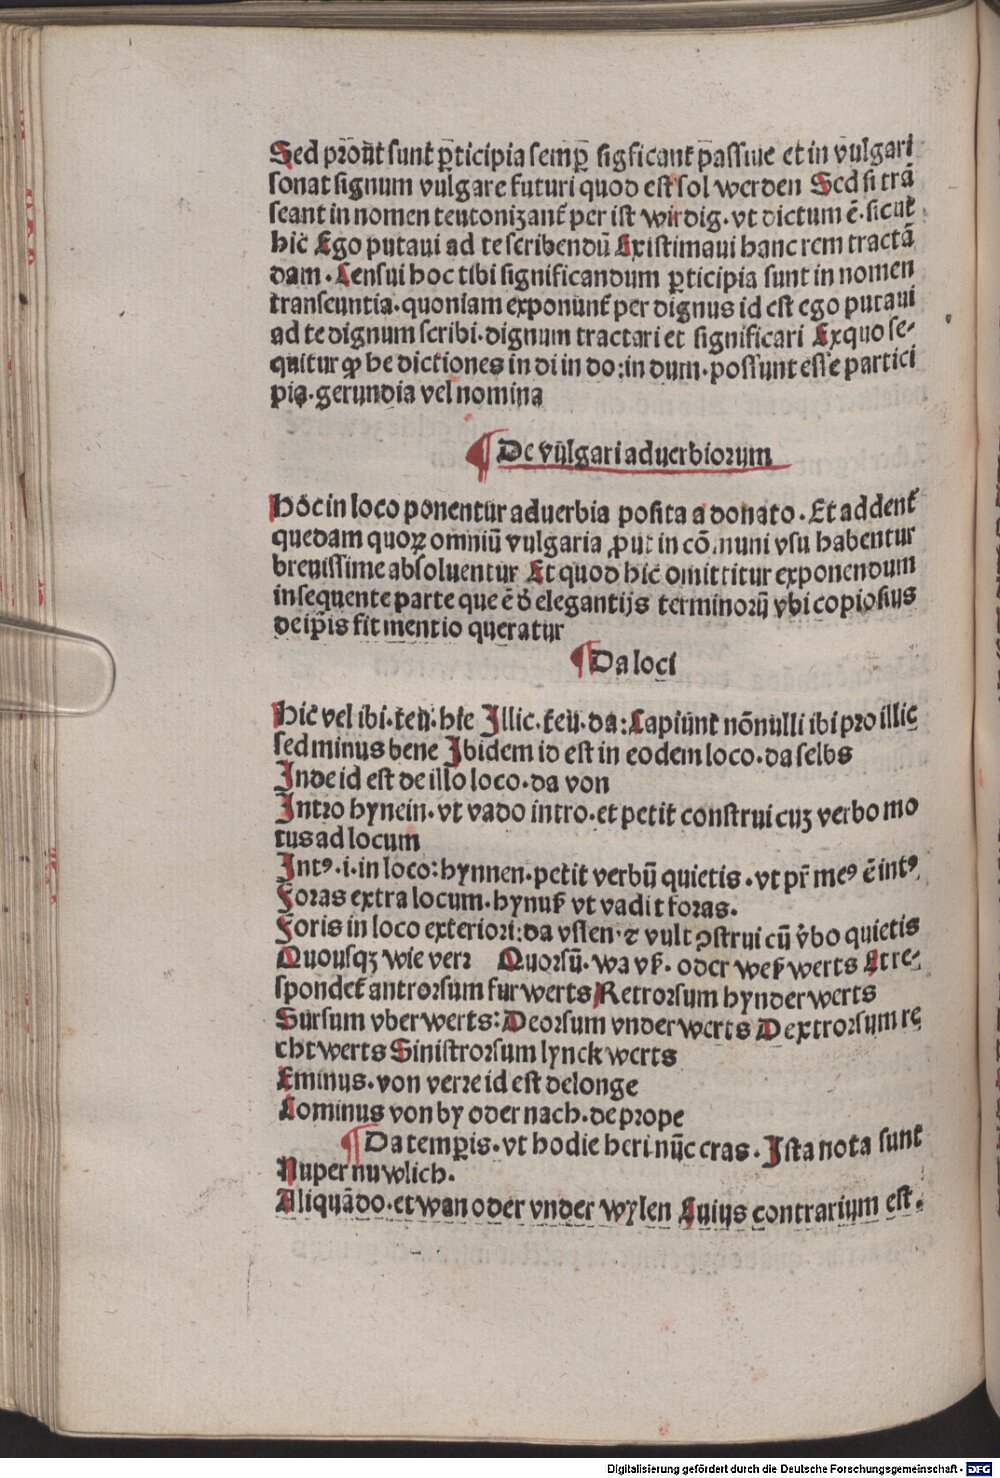 Sed prōnt̄ sunt p̄ticipia semp̄ sigficant̄ passiue et in vulgari
sonat signum vulgare futuri quod est sol werden Sed si trā
seant in nomen teutonizant̄ per ist wirdig. vt dictum ē. sicut
hic Ego putaui ad te scribendū Existimaui hanc rem tractā
dam. Censui hoc tibi significandum ꝑticipia sunt in nomen
transeuntia. quoniam exponunt̄ per dignus id est ego putaui
ad te dignum scribi. dignum tractari et significari Exquo se⸗
quitur ꝙ he dictiones in di in do: in dum. possunt esse partici
pia. gerundia vel nomina
¶ De vulgari aduerbiorum
Hoc in loco ponentur aduerbia posita a donato. Et addent̄
quedam quoꝝ omniū vulgaria ꝓut in cōmuni vsu habentur
breuissime absoluentur Et quod hic omittitur exponendum
in sequente parte que ē d̄ elegantijs terminorū vbi copiosius
de ip̄is fit mentio queratur
¶ Da loci
Hic vel ibi. teū. hie Illic. teū. da: Capiunt nōnulli ibi pro illic
sed minus bene Ibidem id est in eodem loco. da selbs
Inde id est de illo loco. da von
Intro hynein. vt vado intro. et petit construi cuz verbo mo
tus ad locum
Intꝰ. i. in loco: hynnen. petit verbū quietis. vt pr̄ meꝰ ē intꝰ
Foras extra locum. hynuß vt vadit foras.
Foris in loco exteriori: da vssen. ⁊ vult ꝯstrui cū v̄bo quietis
Quousqꝫ wie verr Quorsū. wa vß. oder weß werts Et re⸗
spondet̄ antrorsum fur werts Retrorsum hynder werts
Sursum vber werts: Deorsum vnder werts Dextrorsum re
cht werts Sinistrorsum lynck werts
Eminus. von verre id est de longe
Cominus von by oder nach. de prope
¶ Da temꝑis. vt hodie heri nūc cras. Ista nota sunt
Nuper nuwlich.
Aliquādo. etwan oder vnder wylen Cuius contrarium est.
Digitalisierung gefördert durch die Deutsche Forschungsgemeinschaft - DFG